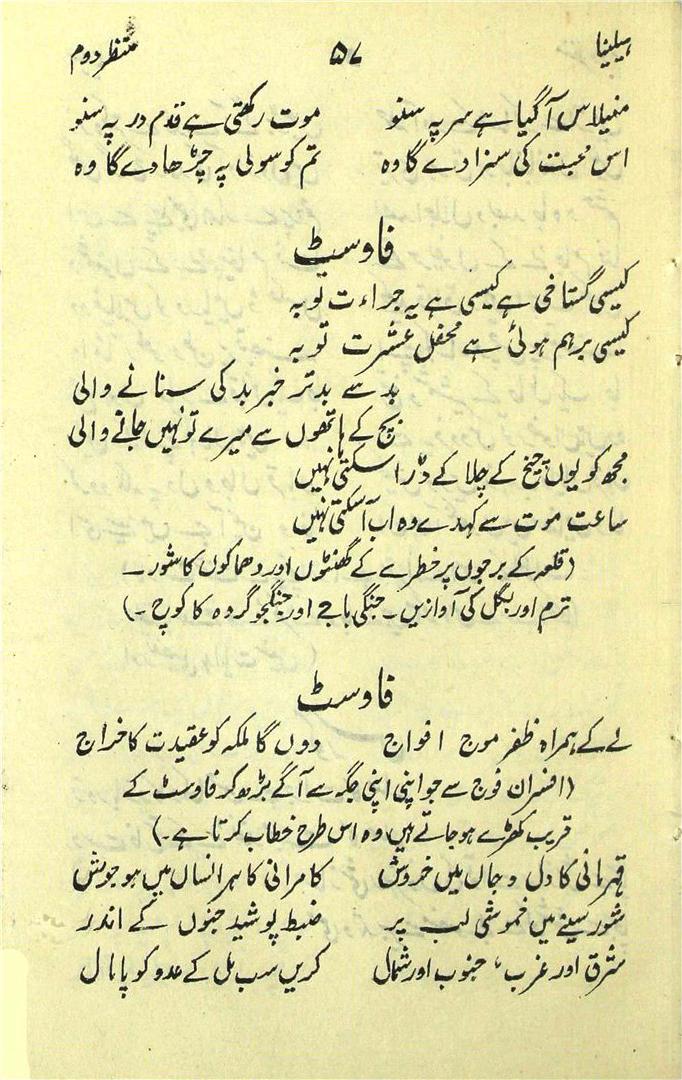 ہیلینا ۵۷ منظر دوم
منیلاس آ گیا ہے سر پہ سنو موت رکھتی ہے قدم در پہ سنو
اس محبت کی سزا دے گا وہ تم کو سولی پہ چڑھا دے گا وہ
فاوسٹ
کیسی گستاخی ہے کیسی ہے یہ جراءت توبہ
کیسی برہم ہوئی ہے محفل عشرت توبہ
بد سے بدتر خبر بد کی سنانے والی
بچ کے ہاتھوں سے میرے تو نہیں جانے والی
مجھ کو یوں چیخ کے چلا کے ڈرا سکتی نہیں
ساعت موت سے کہدے وہ اب آ سکتی نہیں
(قلعہ کے برجوں پر خطرے کے گھنٹوں اور دھماکوں کا شور ۔
ترم اور بگل کی آوازیں۔ جنگی باجے اور جنگجو گروہ کا کوچ ۔)
فاوسٹ
لے کے ہمراہ ظفر موج افواج دوں گا ملکہ کو عقیدت کا خراج
(افسران فوج سے جو اپنی اپنی جگہ سے آگے بڑھ کر فاوسٹ کے
قریب کھڑے ہو جاتے ہیں وہ اس طرح خطاب کرتا ہے۔)
قہرمانی کا دل و جاں میں خروش کامرانی کا ہر انساں میں ہو جوش
شور سینے میں خموشی لب پر ضبط پوشید جنوں کے اندر
شرق اور غرب، جنوب اور شمال کریں سب مل کے عدو کو پامال